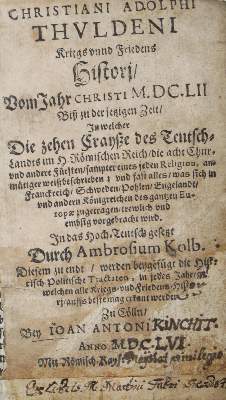 CHRISTIANI ADOLPHI
THVLDENI
Kriegs vnnd Friedens
Histori/
Vom Jahr CHRISTI M.DC.LII
Biß zu der jetzigen Zeit/
In welcher
Die zehen Crayße des Teutsch-
Landts im H. Römischen Reich/die acht Chur-
vnd andere Fürsten/sampt eines jeden Religion, an-
mütiger weiß beschrieben; vnd fast alles/ was sich in
Franckreich/ Schweden/Pohlen/Engelandt/
vnd andern Königreichen des gantzen Eu-
ropæ zugetragen/trewlich vnd
embsig vorgebracht wird.
In das Hoch-Teutsch gesetzt
Durch Ambrosium Kolb.
Diesem zu endt / werden beygefügt die
Politische Tractaten, in jedes Jahr/
welchen alle Kriegs-vnd Friedens-
erkant werden
Zu Cölln/
Bey IOAN ANTONI KINCHII.
ANNO M.DC.LVI.
Mit Römisch. Kays.